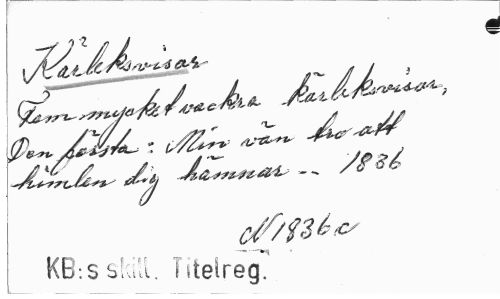 Kärleksvisor
Fem mycket vackra kärleksvisor,
Den första: Min vän tro att
himlen dig hämnar -- 1836
N 1836 c
KB:s skill. Titelreg.